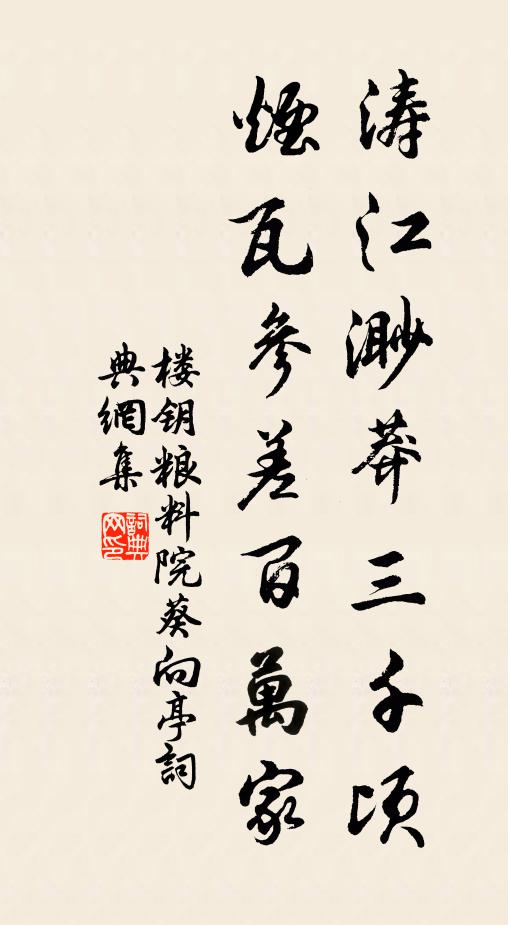 涛江渺莽三千頃
煙瓦參差百萬家
楼钥粮料院葵向亭詞
典網集
詞典网印